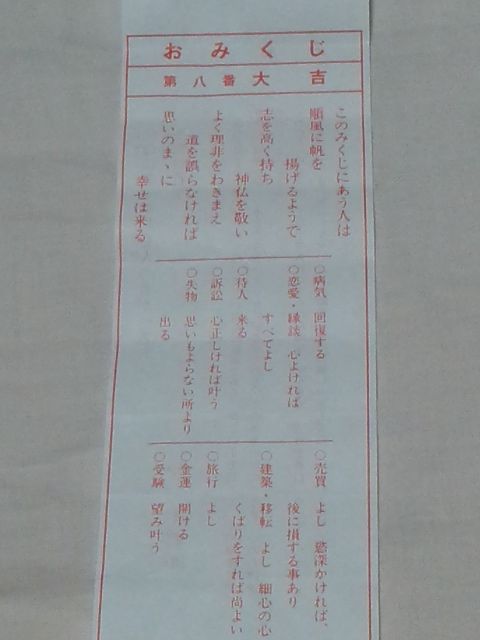 おみくじ
第八番大吉
このみくじにあう人は
順風に帆を
揚げるようで
志を高く持ち
神仏を敬い
よく理非をわきまえ
道を誤らなければ
思いのまゝに
幸せは来る
〇病気 回復する
〇恋愛・縁談 心よければ
すべてよし
〇待人 来る
〇訴訟 心正しければ叶う
〇失物 思いもよらない所より
出る
〇売買 よし 慾深かければ、
後に損する事あり
〇建築・移転 よし 細心の心
くばりをすれば尚よい
〇旅行 よし
〇金運 開ける
〇受験 望み叶う